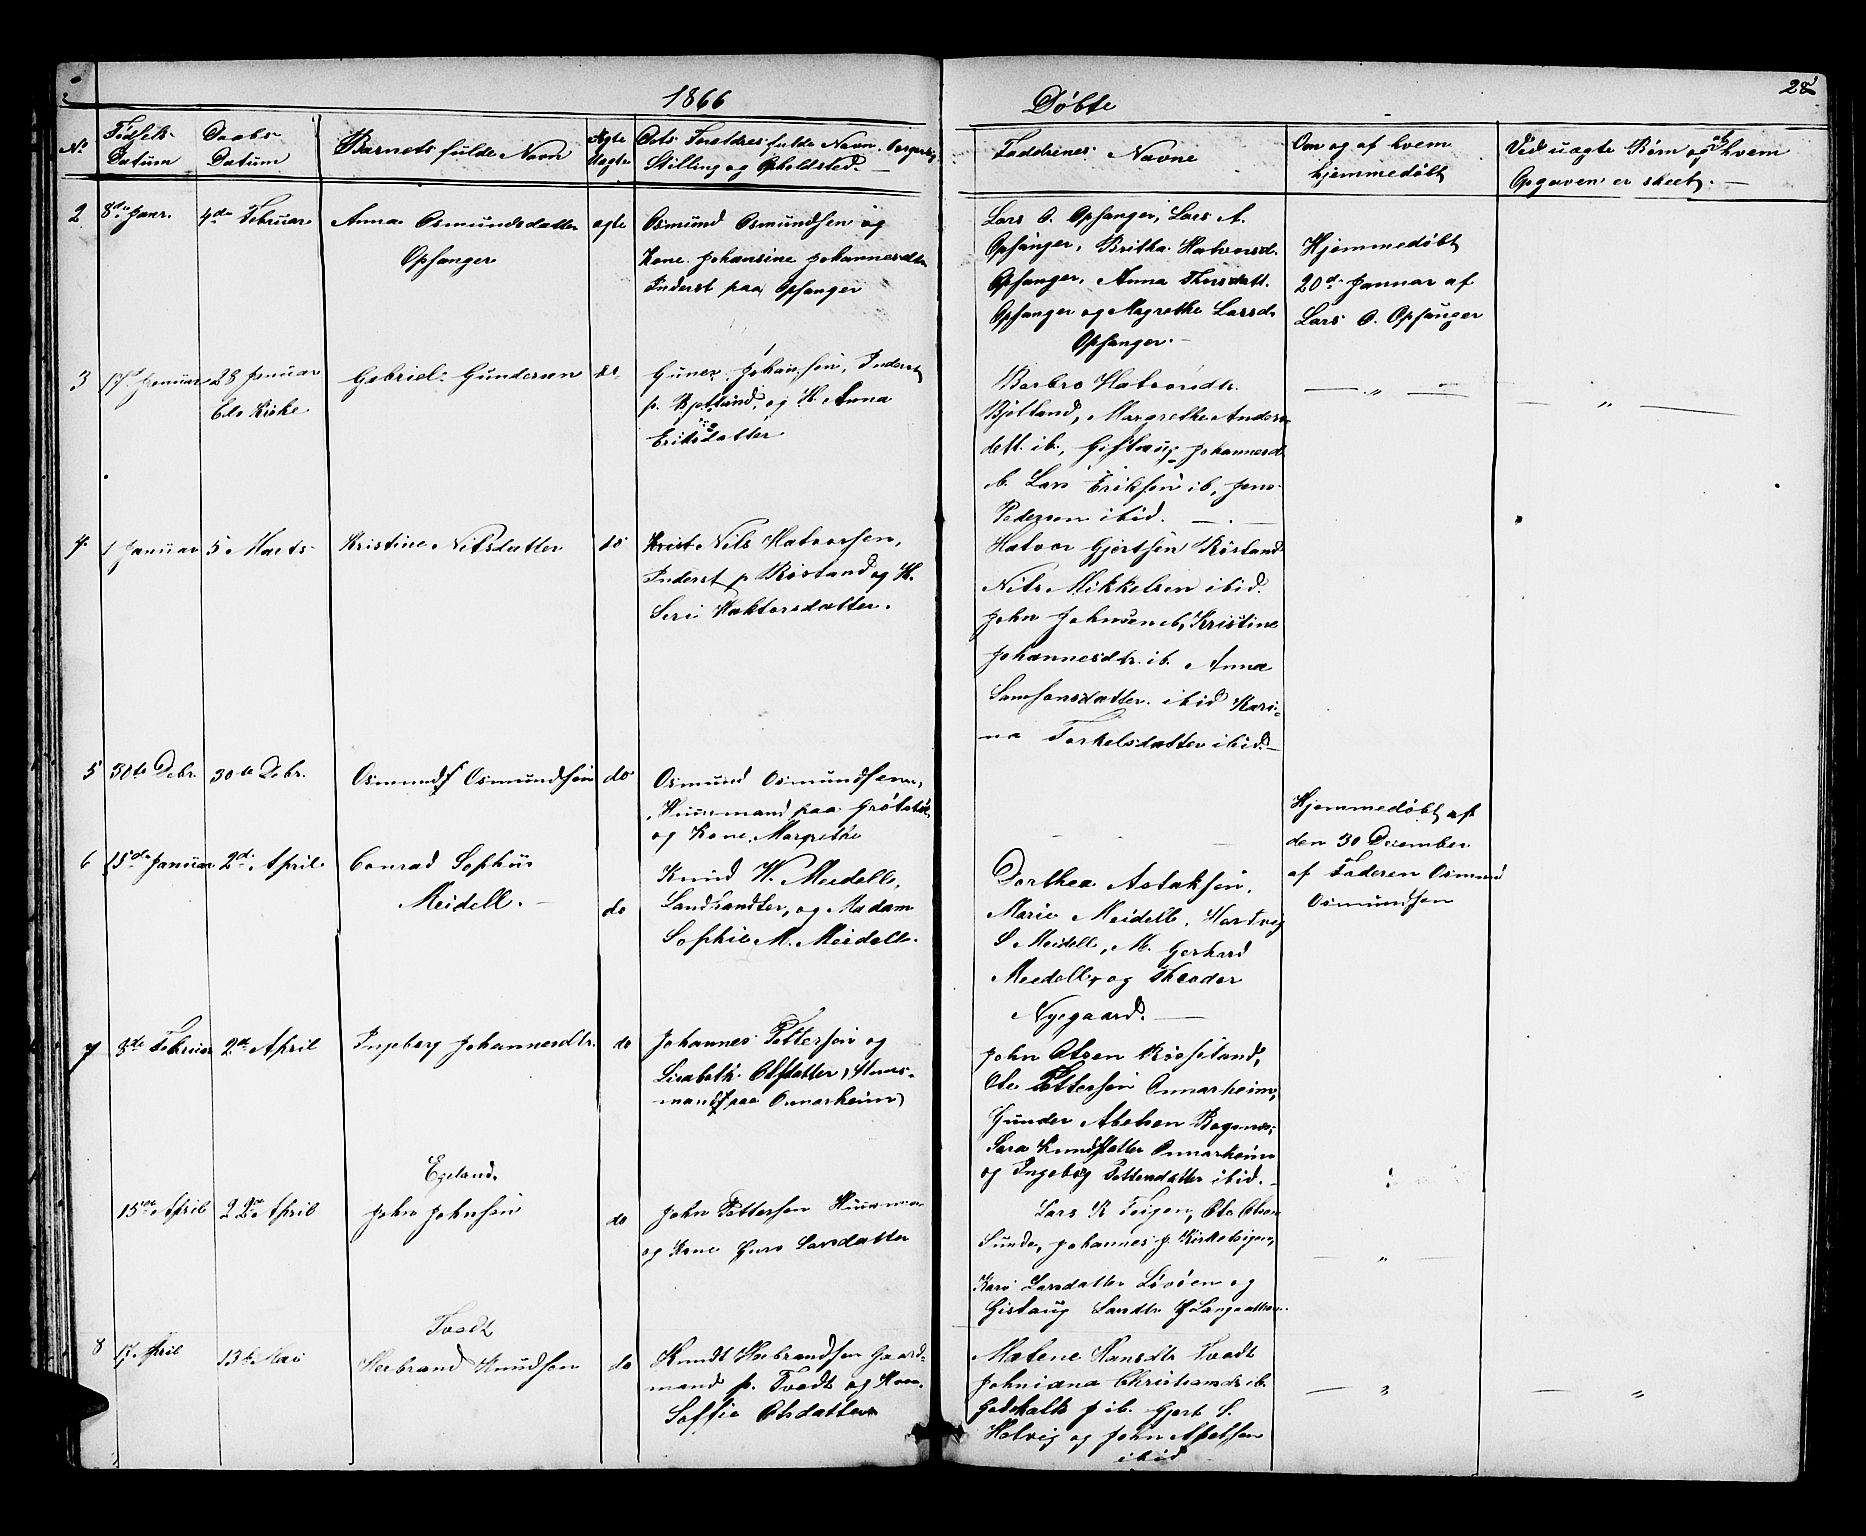 1866
Døbte
28
No
Fødsels-
Datum
Daabs
Datum
Barnets fulde Navn
Ægte
Uægte
Dets Foreldres fulde Navn, Borgerlig
Stilling og Opholdsted.
Faddrenes Navne
Om og af hvem
hjemmedøbt
Ved uægte Børn og af hvem
Opgaven er skeet.
2 8de Janr. 4de Februar Anna Osmundsdatter ægte
Opsanger
Osmund Osmundsen og
Kone Johansine Johannesdtr
Inderst paa Opsanger
Lars O. Opsanger, Lars A.
Opsanger, Britha Halvorsd.
Opsanger, Anna Thorsdatt.
Opsanger og Magrethe Larsd.
Opsanger.
Hjemmedøbt
20de Januar af
Lars O. Opsanger
3 17 Januar 28 Januar Gabriel Gundersen do
Kirke
Johansen, Inderst
p. og K. Anna
Eriksdatter
Barbro Halvorsdtr.
Bjelland, Margrethe Anders-
datt. ib., Gistaug Johannesd.
ib. Lars Eriksen ib, Jens
Pedersen ibid.
4 1 Januar 5 Marts Kristine Nilsdatter do
Nils Halvorsen,
Inderst p Røsland og K.
Seri
Halvor Gjertsen Røsland
Nils Mikkelsen ibid.
John Johnsen ib, Kristine
Johannesdtr. ib. Anna
Samsonsdatter ibid Kari-
na Torkelsdatter ibid.
5 30te Debr. 30te Debr. Osmund Osmundsen do
Osmund Osmundsen,
Huusmand paa
og Kone Margrethe
Hjemmedøbt af
den 30 December
af Faderen Osmund
Osmundsen
6 15de Januar 2den April Conrad Sophus
Meidell.
do
Knud H. Meidell,
Landhandler, og Madam
Sophie M. Meidell.
Dorthea Aslaksen,
Marie Meidell, Hartvig
S Meidell, M. Gerhard
Meidell, og Theodor
Nygaard.
7 3de Februar 2den April Ingeborg Johannesdtr. do
Johannes Pettersen og
Lisabeth Olsdatter, Huus-
mandsf paa Onarheim
John Olsen Røssland,
Ole Pettersen Onarheim,
Gunder Abelsen
Sara Knudsdatter Onarheim
og Ingeborg Pettersdatter ibid.
Egeland.
15de April 22de April John Johnsen do
John Pettersen Huusman
og Kone Guro Larsdatter
Lars K Teigen, Ole Olsen
Sunde, Johannes J.
Kari Larsdatter Løvøen og
Gistaug Larsdtr.
Tvedt
8 17 April 13de Mai Herbrand Knudsen do
Knudt Herbrandsen Gaard-
mand p. Tvedt og Kone
Saffie Olsdatter
Malene Hansdtr Tvedt
Johniana Christiansdr ib.
Godskalk J ib. Gjert S.
Helvig og John Apelsen
ibid